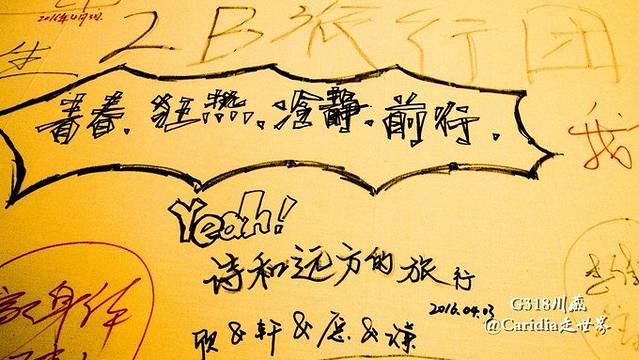 2016年4月3日
2B旅行团
青春.狂热.冷静.前行.
我
Yeah!
诗和远方的旅行
2016.04.03
G318川藏
@Caridia走世界
&轩&愿&